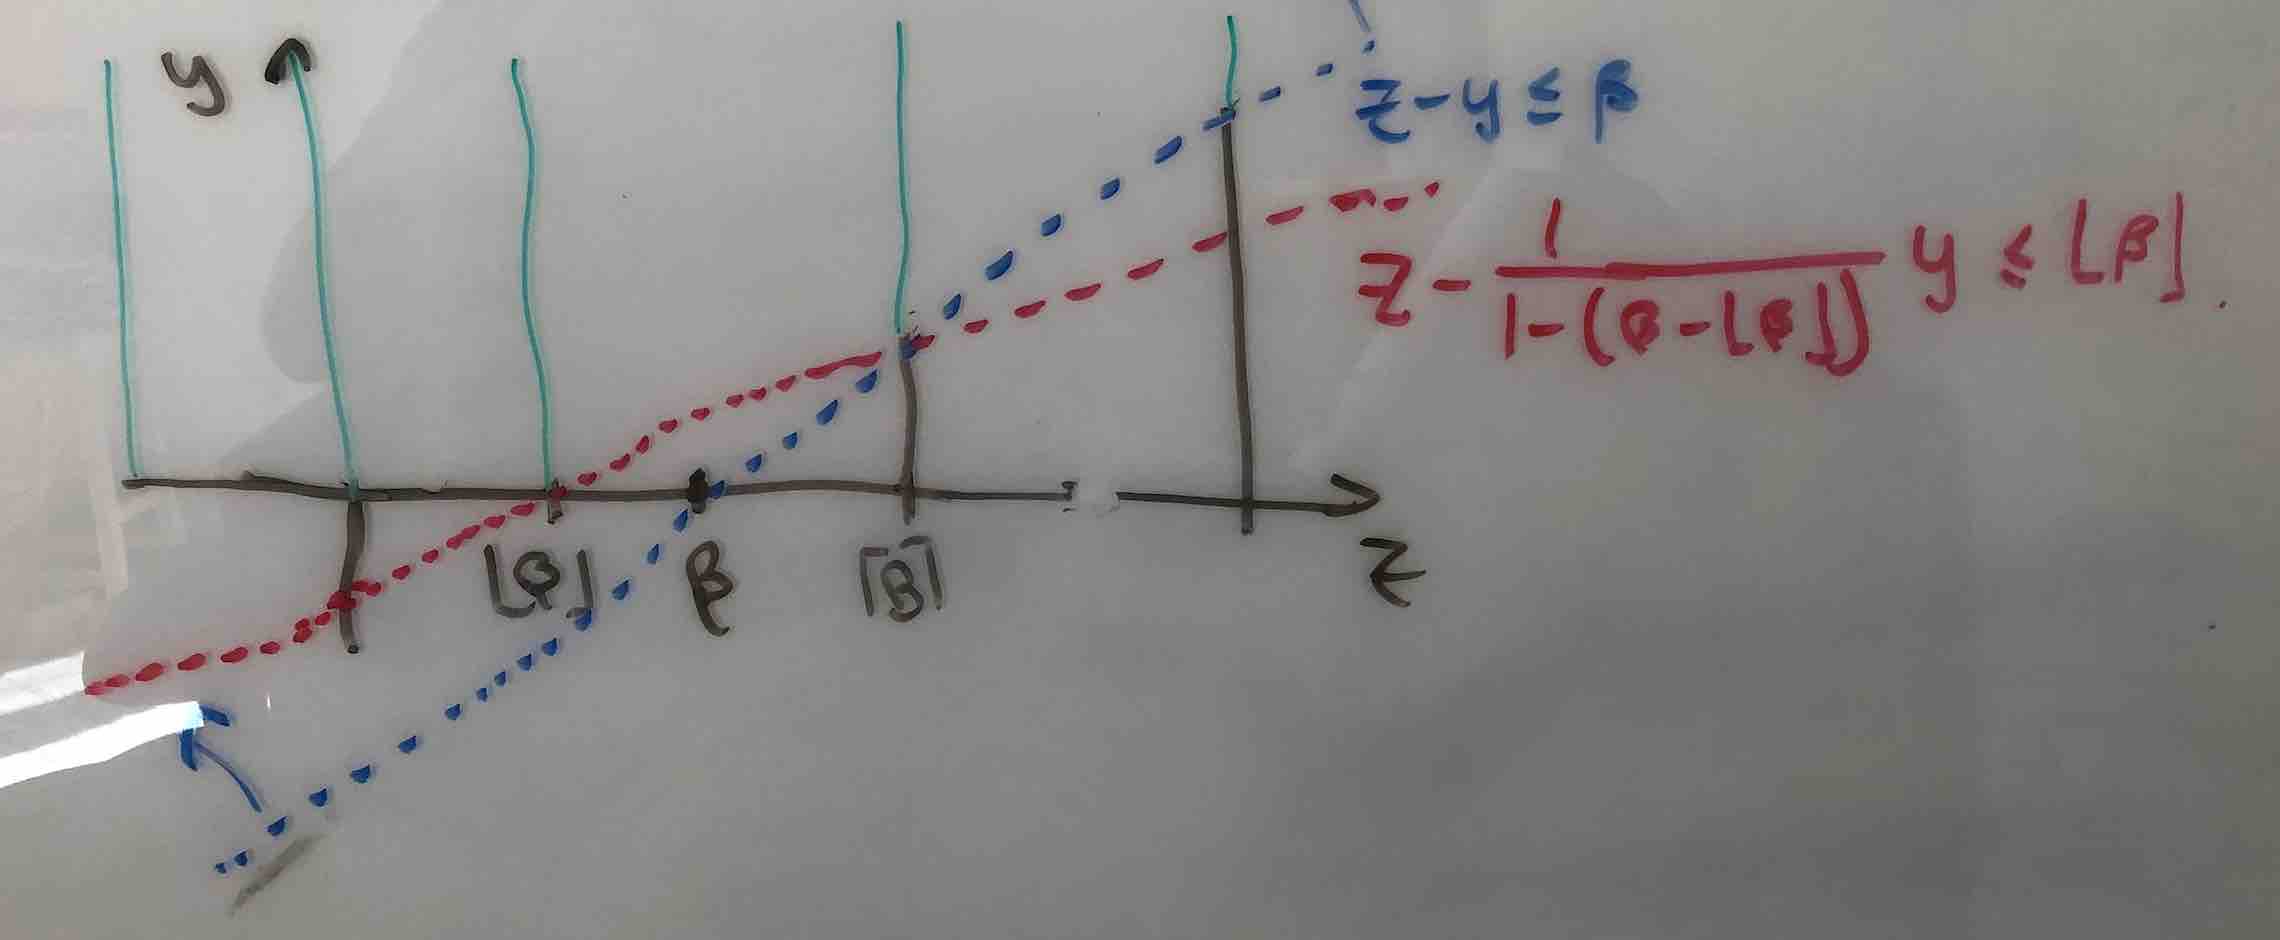 y
z - y ≤ β
z - \frac{1}{1-(β-⌊β⌋)} y ≤ ⌊β⌋.
⌊β⌋ β ⌈β⌉ z